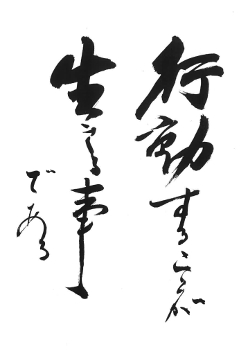 行動することが
生きる事
である